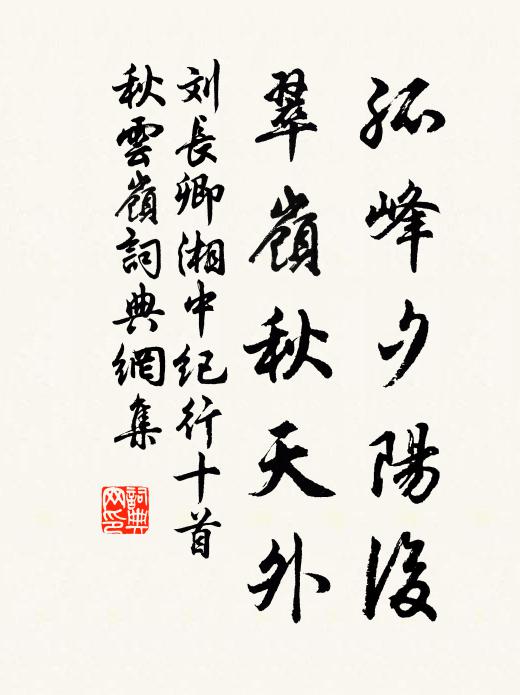 孤峰夕陽後
翠嶺秋天外
刘長卿湘中纪行十首
秋雲嶺詞典網集
詞典網印